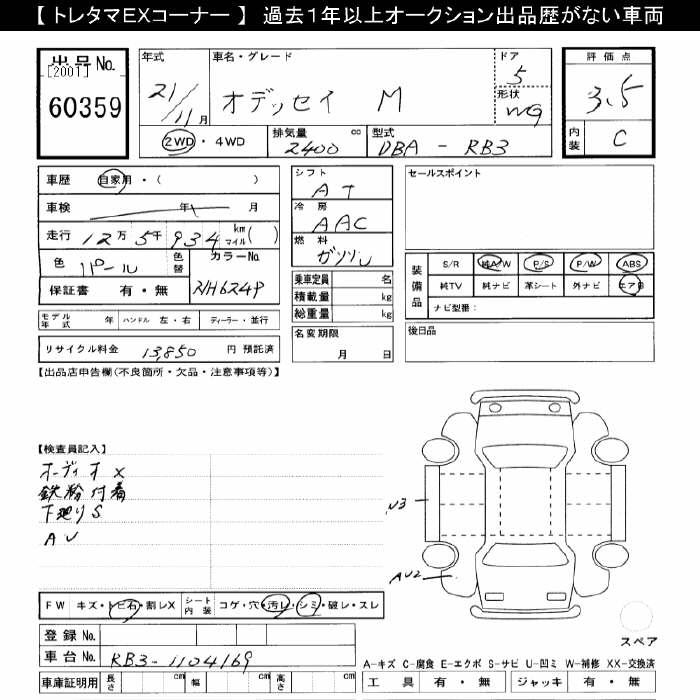 【 トレタマEXコーナー 】 過去1年以上オークション出品歴がない車両
出品No.
[2001]
60359
年式
21/11月
車名・グレード
オデッセイ M
ドア
5
形状
WG
2WD ・ 4WD
排気量 cc
2400
型式
DBA - RB3
評価点
3.5
内装
C
車歴 自家用・( )
車検 年 月
走行 12万5千934 km マイル( )
色 パール 色替 カラーNo. NH624P
保証書 有・無
モデル年式 年 ハンドル 左・右 ディーラー・並行
リサイクル料金 13,850 円 預託済
シフト
AT
冷房
AAC
燃料
ガソリン
乗車定員 名
積載量 kg
総重量 kg
名変期限
月 日
セールスポイント
装備品
S/R 純A/W P/S P/W ABS
純TV 純ナビ 革シート 外ナビ エアB
ナビ型番:
後日品
【出品店申告欄(不良箇所・欠品・注意事項等)】
【検査員記入】
オーディオ X
鉄粉付着
下廻り S
AU
U3
AU2
FW キズ・トビ石・割レX シート内装 コゲ・穴・汚レ・シミ・破レ・スレ
登録No.
車台No. RB3-1104169
車庫証明用 長さ cm 幅 cm 高さ cm
スペア
A-キズ C-腐食 E-エクボ S-サビ U-凹ミ W-補修 XX-交換済
工具 有・無 ジャッキ 有・無